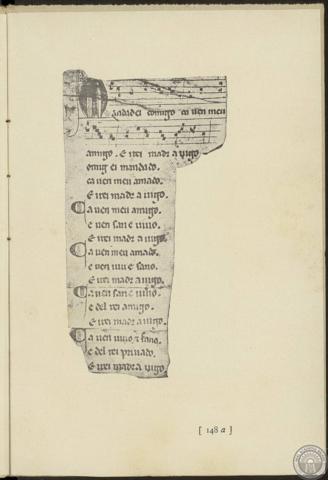 Mandadei comigo ca uen meu
amigo. E irei madr a uigo
comig ei mandado.
ca uen meu amado.
E irei madr a uigo.
Ca uen meu amigo.
e uen san e uiuo.
E irei madr a uigo.
Ca uen meu amado.
e uen uiu e sano.
E irei madr a uigo.
Ca uen san e uiuo.
e del rei amigo.
E irei madr a uigo.
Ca uen uiuo e sano.
e del rei priuado.
E irei madr a uigo
[ 148 a ]